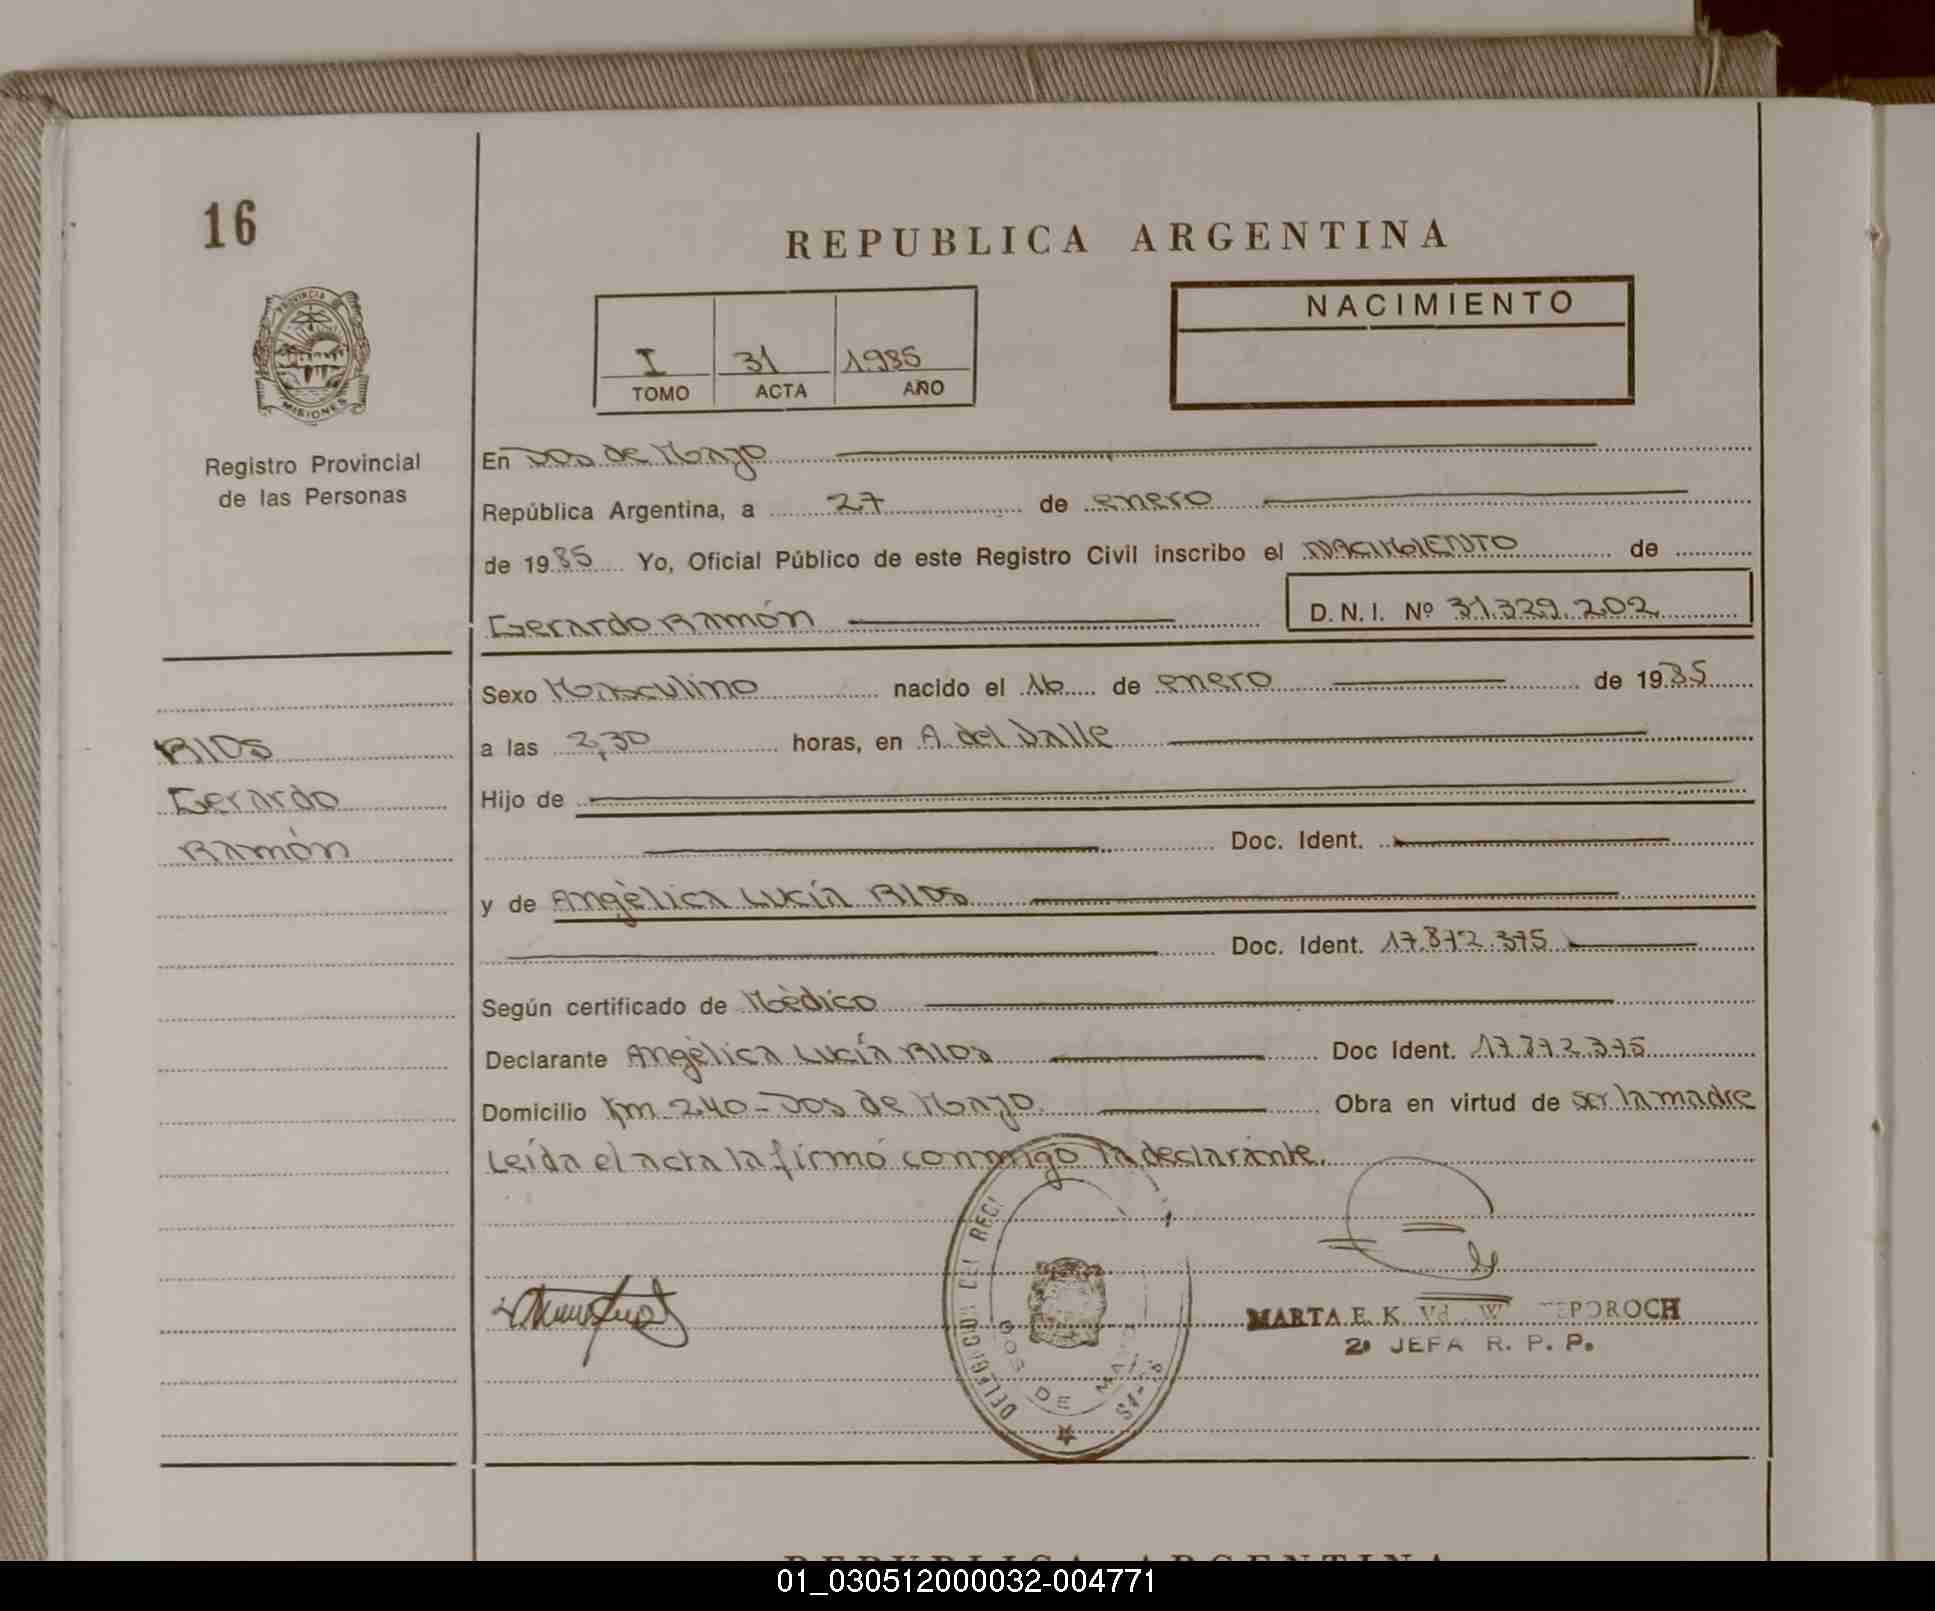 16
REPUBLICA ARGENTINA
NACIMIENTO
I 31 1985
TOMO ACTA AÑO
PROVINCIA
MISIONES
Registro Provincial
de las Personas
En Dos de Mayo
República Argentina, a 27 de enero
de 1985 Yo, Oficial Público de este Registro Civil inscribo el NACIMIENTO de
Gerardo Ramón D.N.I. Nº 31.329.202
Sexo Masculino nacido el 16 de enero de 1985
RIOS
Gerardo
Ramón
a las 2,30 horas, en A. del Valle
Hijo de
Doc. Ident.
y de Angèlica Lucía RIOS
Doc. Ident. 17.872.375
Según certificado de Mèdico
Declarante Angèlica Lucía RIOS Doc Ident. 17.872.375
Domicilio Km 240 - Dos de Mayo. Obra en virtud de ser la madre
Leída el acta la firmó conmigo la declarante.
DELEGACION DEL REGI
DOS DE MAYO
MARTA E. K. Vd. W
2ª JEFA R. P. P.
REPUBLICA ARGENTINA
01_030512000032-004771